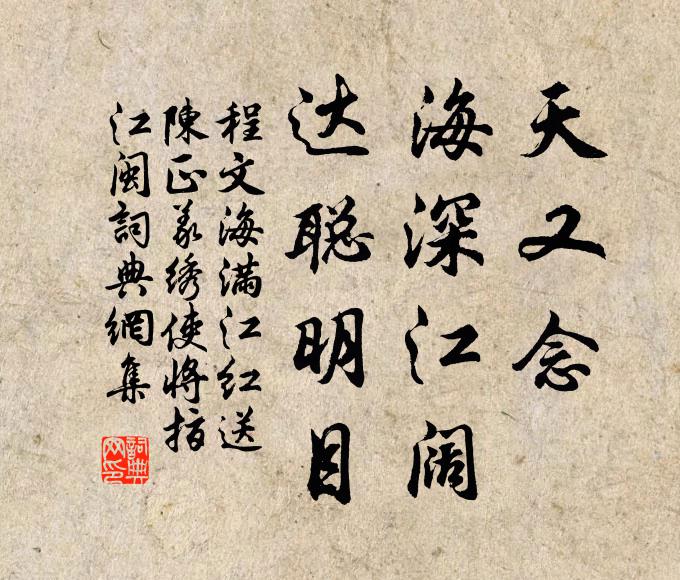 天又念
海深江阔
达聪明目
程文海满江红送
陳正义绣使将指
江闽詞典網集
詞典网印